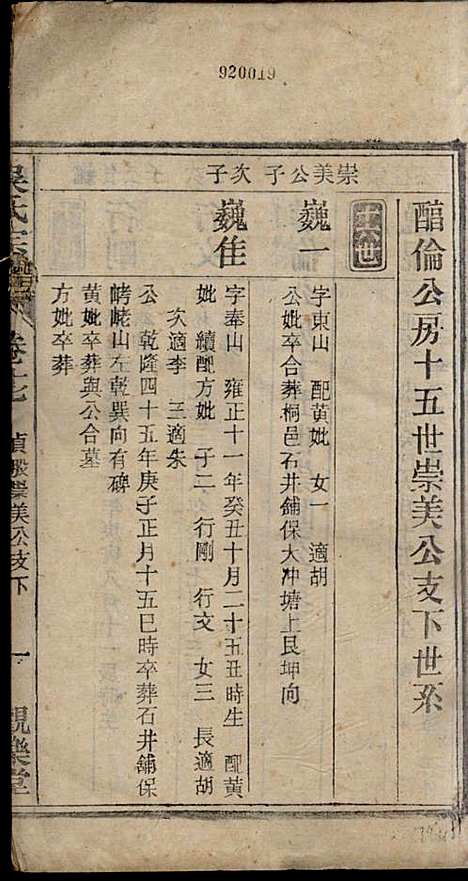 920019
酯倫公房十五世崇美公支下世系
十六世
崇美公子 次子
巍一
字東山 配黃妣 女一 適胡
公妣卒合葬桐邑石井舖保大冲塘上艮坤向
巍隹
字奉山 雍正十一年癸丑十月二十五丑時生 配黃
妣 續配方妣 子二 行剛 行文 女三 長適胡
次適李 三適朱
公 乾隆四十五年庚子正月十五巳時卒葬石井舖保
峬峔山左乾巽向有碑
黃妣卒葬與公合墓
方妣卒葬
吳氏宗譜 卷之七 貞股崇美公支下 一 親樂堂